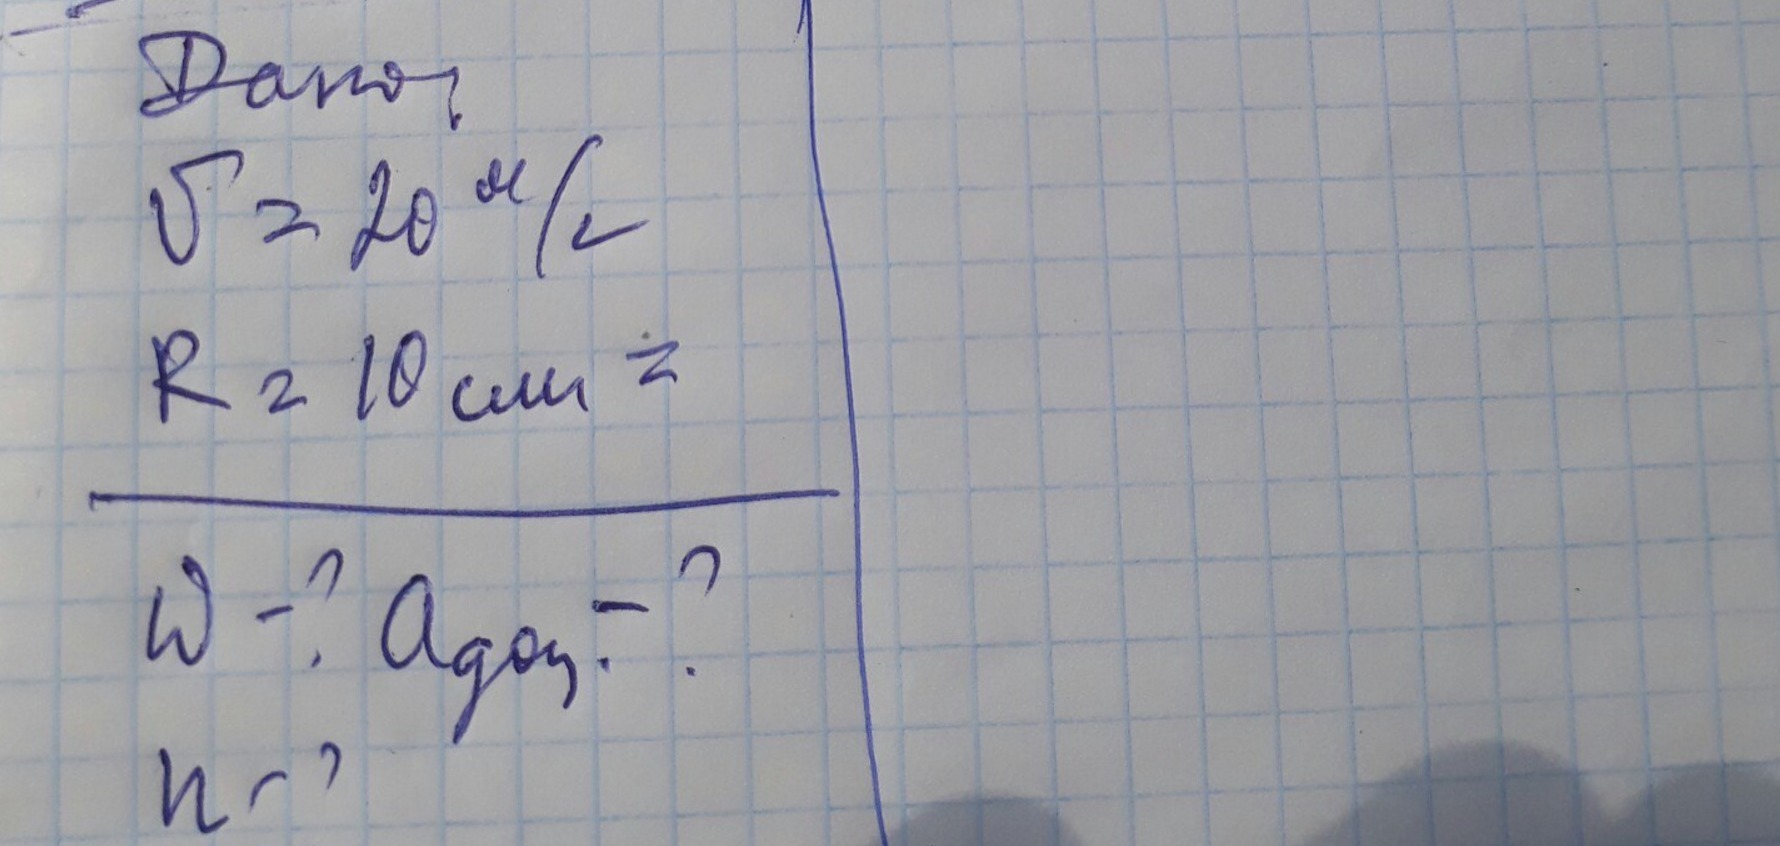 Дано:
υ = 20 м/с
R = 10 см =
ω - ? aдоц. - ?
n - ?